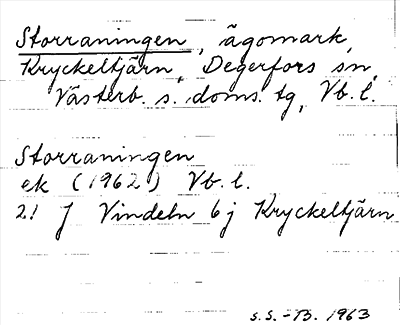 Storraningen, ägomark,
Kryckeltjärn, Degerfors sn,
Västerb. s. doms. tg, Vb. l.
Storraningen
ek (1962) Vb. l.
21 J Vindeln 6j Kryckeltjärn
S.S.-B. 1963